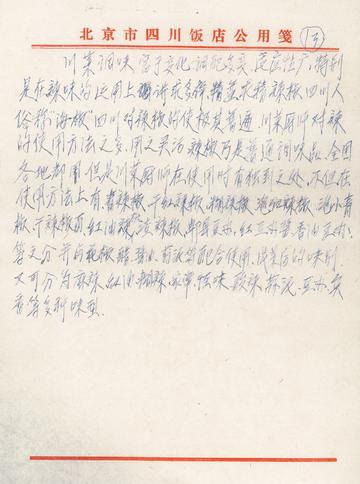 北京市四川饭店公用笺
13
川菜调味富于变化,调配多变,适应性广,特别
是在辣味的运用上,讲求多样精益求精,辣椒四川人
俗称“海椒”四川对辣椒的使极其普遍,川菜厨师对辣
的使用方法之多,用之灵活,辣椒乃是普通调味品,全国
各地都用,但是川菜厨师在使用时有独到之处,不但在
使用方法上有青辣椒、干红辣椒、糊辣椒、泡红辣椒、泡小青
椒、干辣椒面、红油辣、渍辣椒、郫县豆瓣、红豆瓣 香油豆瓣、
等之分,并与花椒、醋 等配合使用,成菜后的味别
又可分为麻辣、红油、糊辣、家常、怪味、酸辣、蒜泥、豆瓣、
香等多种味型.